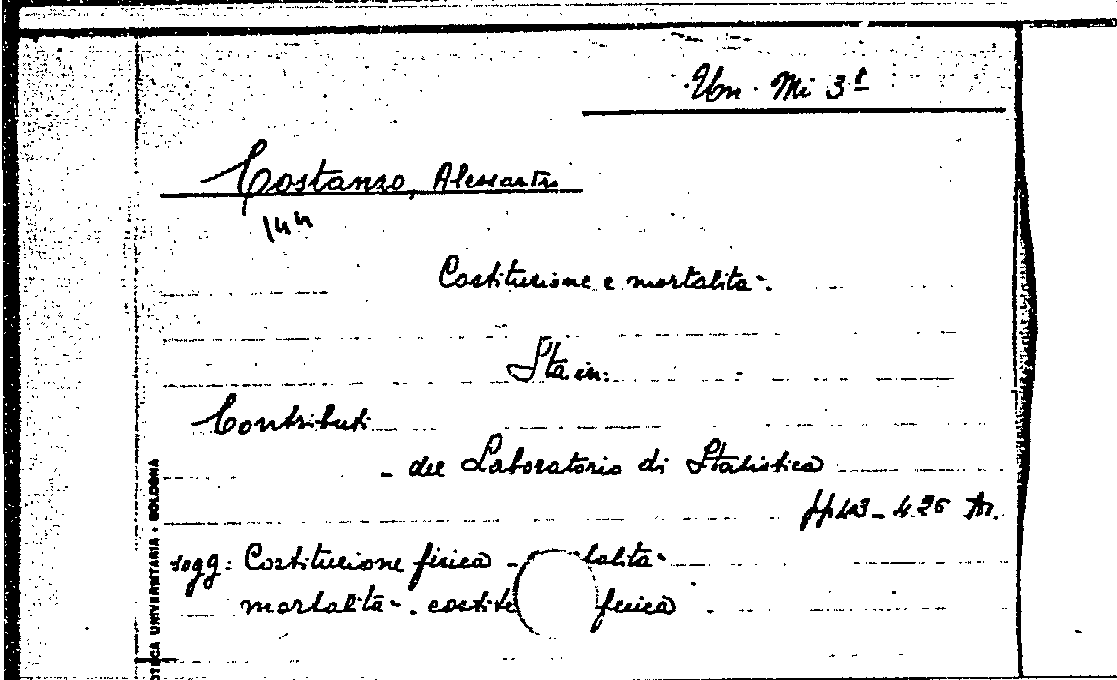 Un. Mi 3ª
Costanzo, Alessandro
144
Costituzione e mortalità.
Sta in:
Contributi
del Laboratorio di Statistica
pp 413-426 Tr.
sogg: Costituzione fisica - talità
mortalità - costit fisica
OTECA UNIVERSITARIA • BOLOGNA